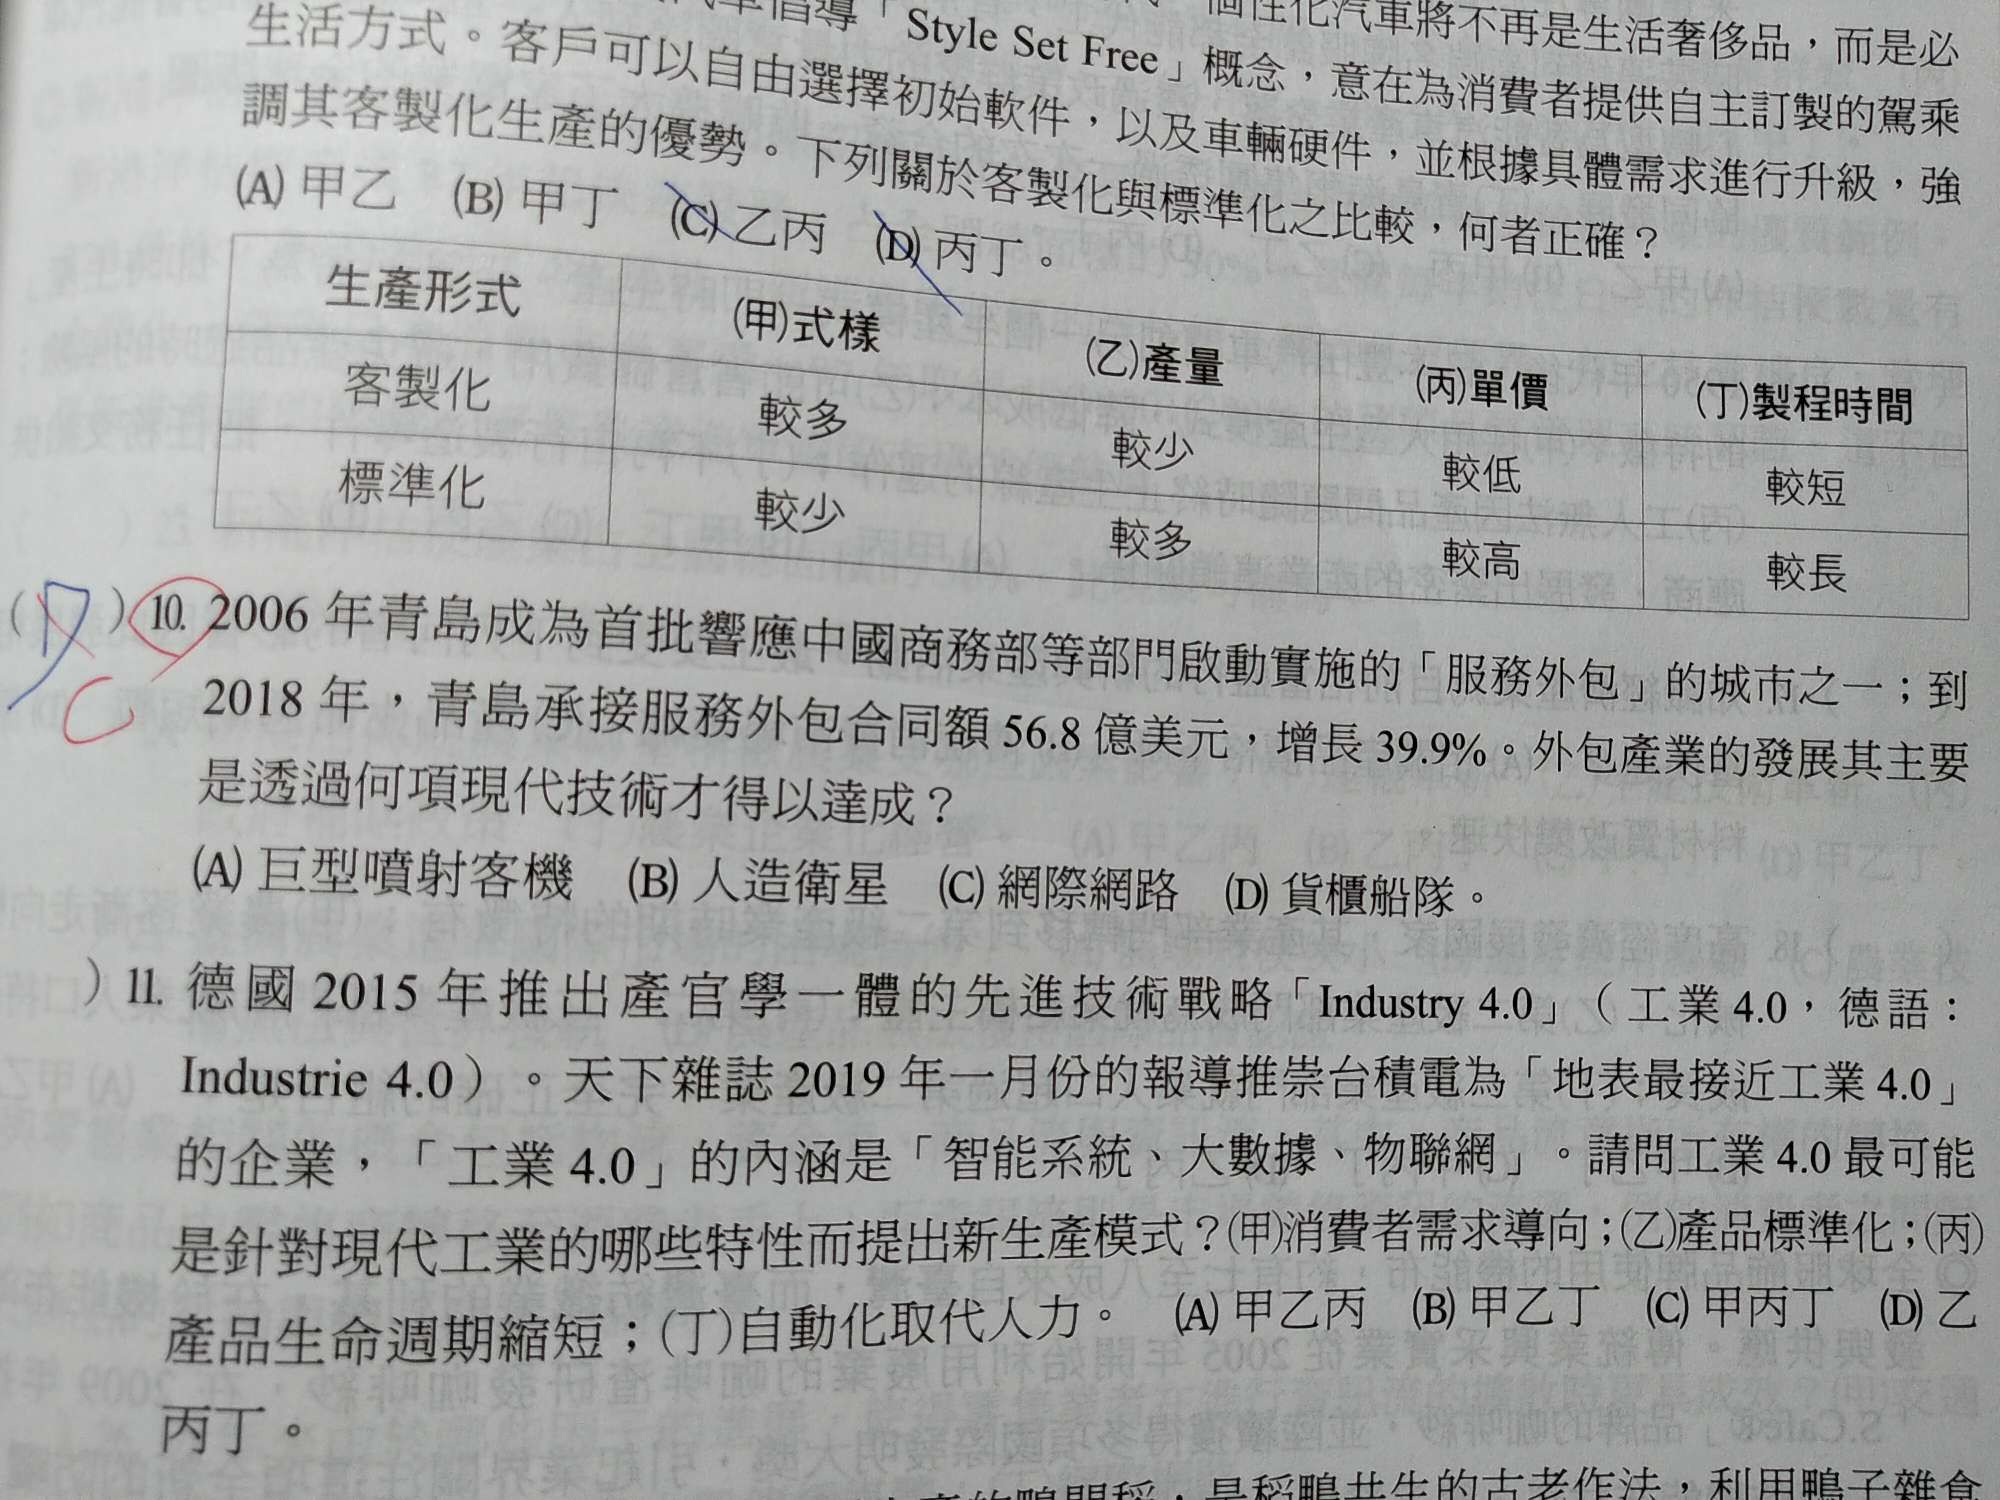 個性化汽車將不再是生活奢侈品，而是必
生活方式。客戶可以自由選擇初始軟件，以及車輛硬件，並根據具體需求進行升級，強
汽車倡導「Style Set Free」概念，意在為消費者提供自主訂製的駕乘
調其客製化生產的優勢。下列關於客製化與標準化之比較，何者正確？
(A) 甲乙 (B) 甲丁 (C) 乙丙 (D) 丙丁。
生產形式 (甲)式樣 (乙)產量 (丙)單價 (丁)製程時間
客製化 較多 較少 較低 較短
標準化 較少 較多 較高 較長
( ) 10. 2006 年青島成為首批響應中國商務部等部門啟動實施的「服務外包」的城市之一；到
C
2018 年，青島承接服務外包合同額 56.8 億美元，增長 39.9%。外包產業的發展其主要
是透過何項現代技術才得以達成？
(A) 巨型噴射客機 (B) 人造衛星 (C) 網際網路 (D) 貨櫃船隊。
) 11. 德國 2015 年推出產官學一體的先進技術戰略「Industry 4.0」（工業 4.0，德語：
Industrie 4.0）。天下雜誌 2019 年一月份的報導推崇台積電為「地表最接近工業 4.0」
的企業，「工業 4.0」的內涵是「智能系統、大數據、物聯網」。請問工業 4.0 最可能
是針對現代工業的哪些特性而提出新生產模式？(甲)消費者需求導向；(乙)產品標準化；(丙)
產品生命週期縮短；(丁)自動化取代人力。 (A) 甲乙丙 (B) 甲乙丁 (C) 甲丙丁 (D) 乙
丙丁。
是稻鴨共生的古老作法，利用鴨子雜食